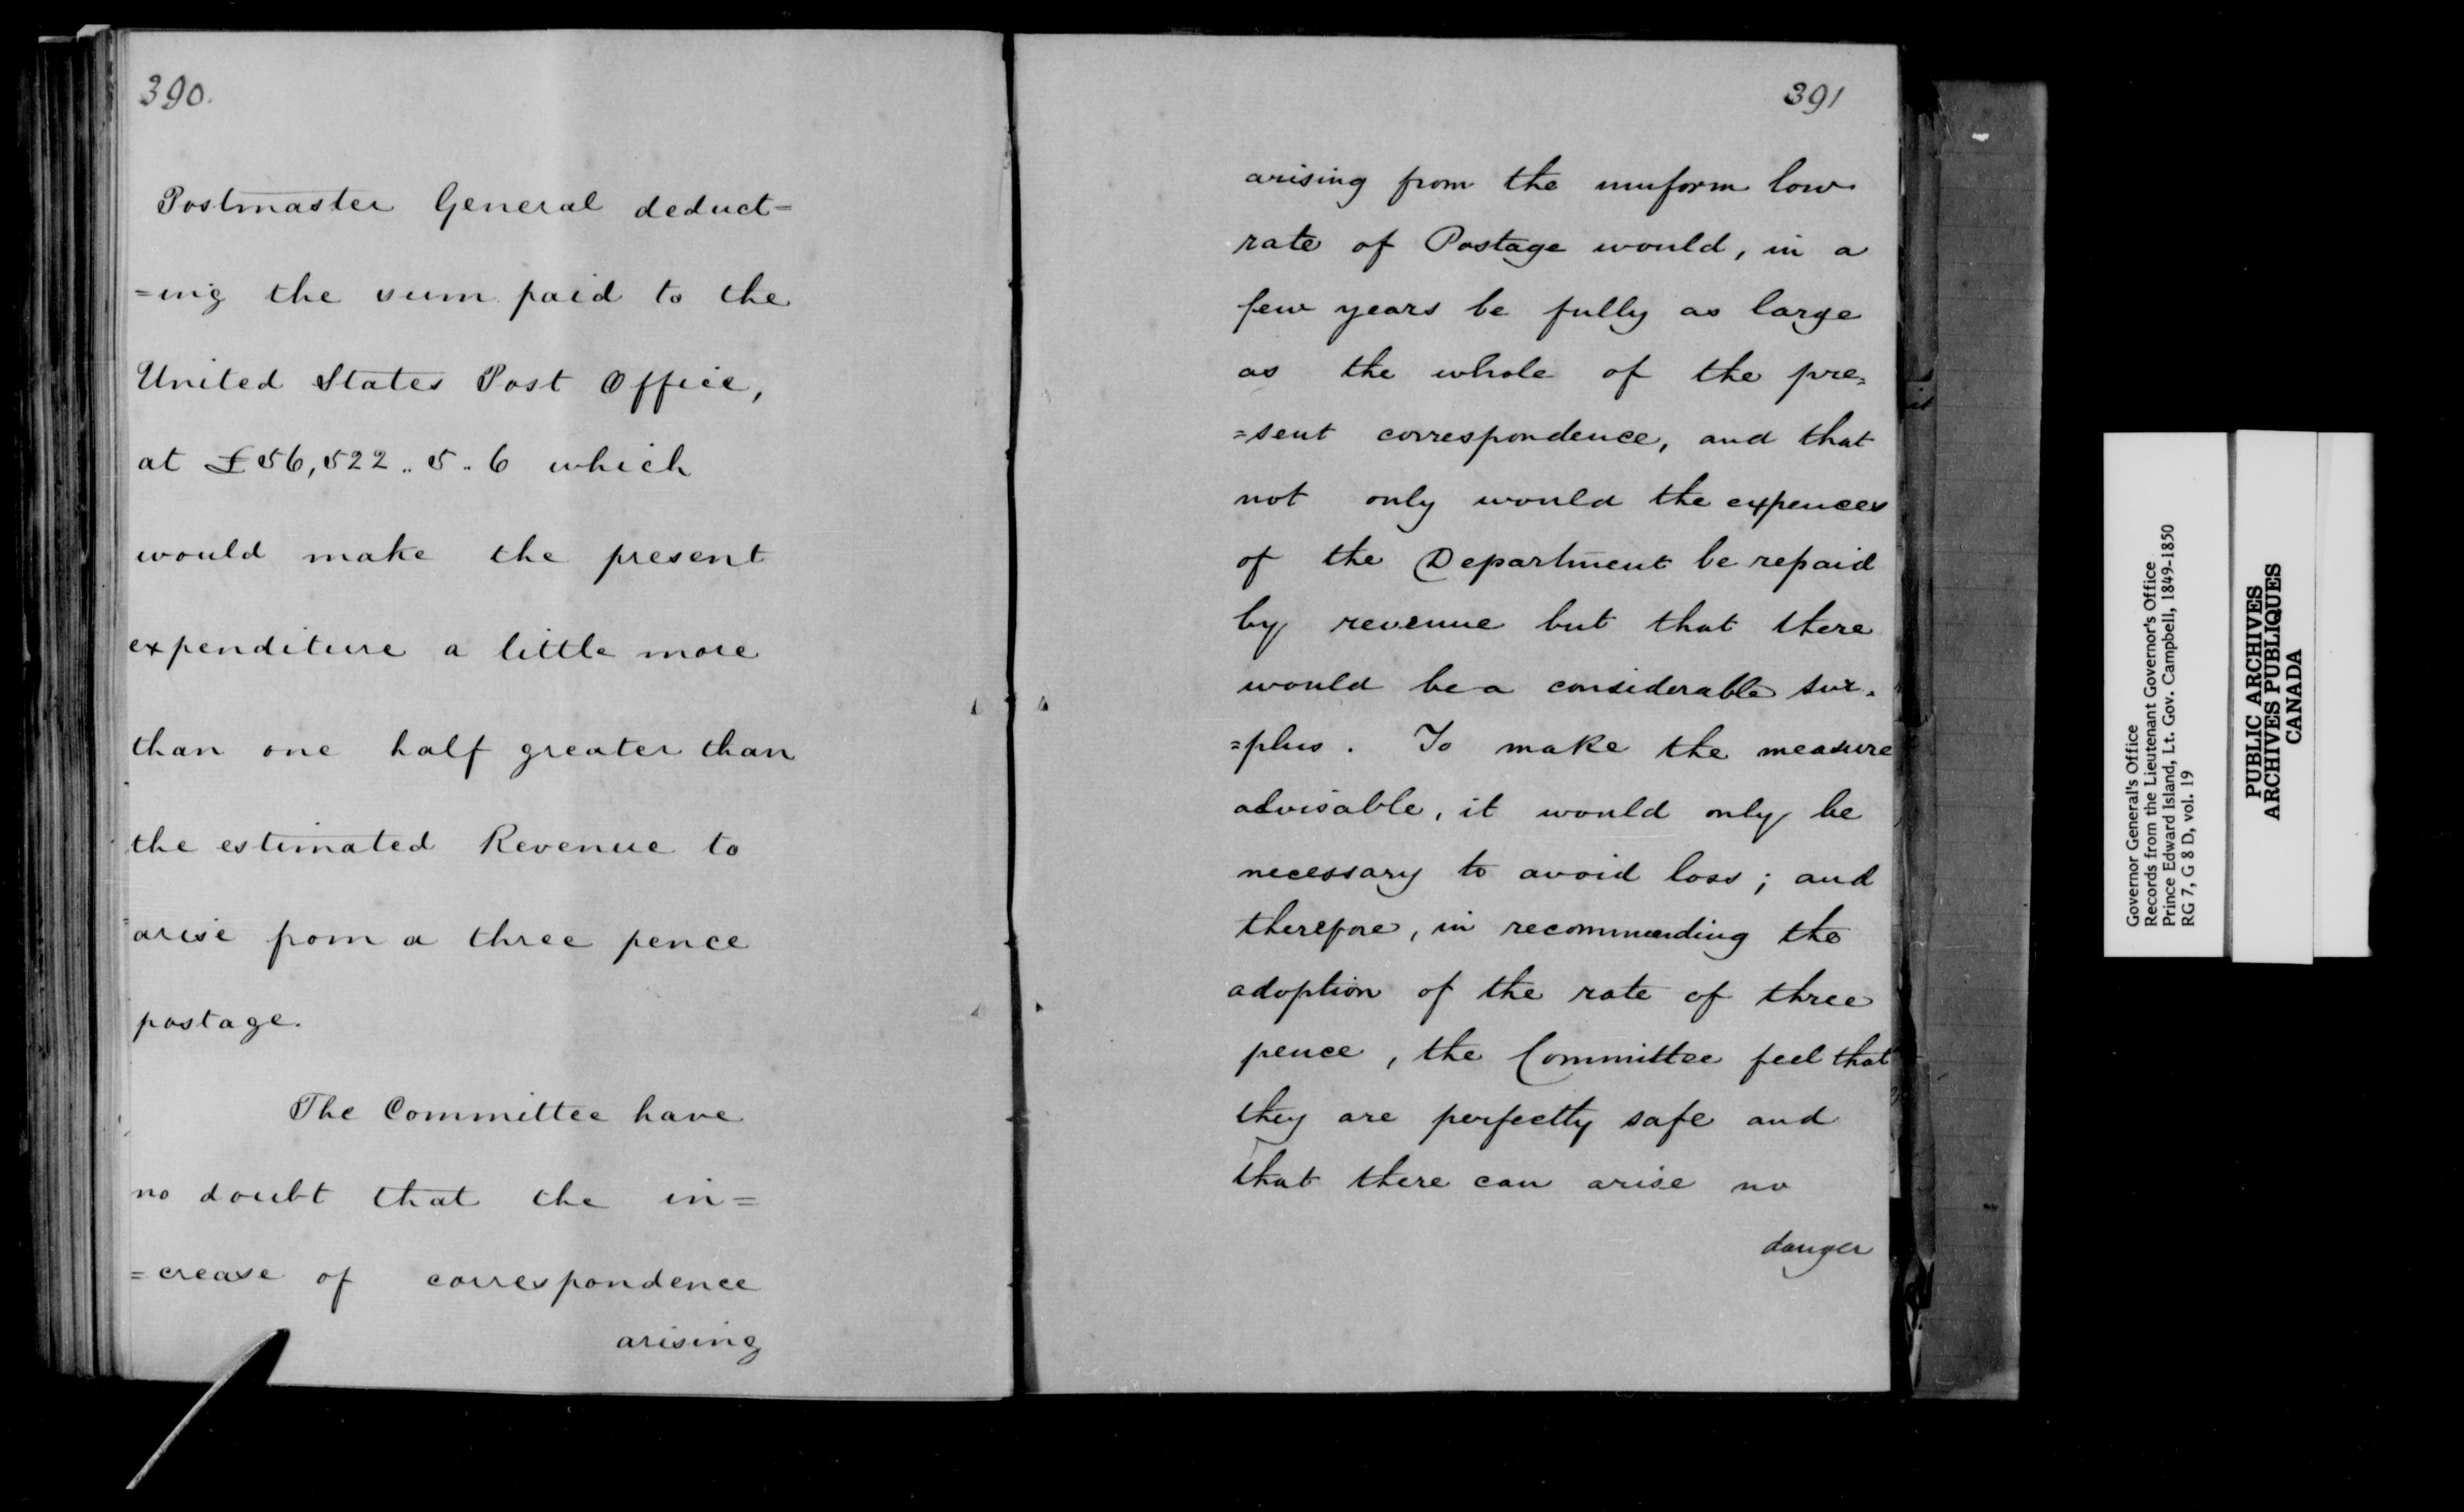 390.
Postmaster General deduct=
=ing the sum paid to the
United States Post Office,
at £56,522.. 5.. 6 which
would make the present
expenditure a little more
than one half greater than
the estimated Revenue to
arise from a three pence
postage.
The Committee have
no doubt that the in=
=crease of correspondence
arising
391
arising from the uniform low
rate of Postage would, in a
few years be fully as large
as the whole of the pre=
=sent correspondence, and that
not only would the expences
of the Department be repaid
by revenue but that there
would be a considerable sur=
=plus. To make the measure
advisable, it would only be
necessary to avoid loss; and
therefore, in recommending the
adoption of the rate of three
pence, the Committee feel that
they are perfectly safe and
that there can arise no
danger
Governor General's Office
Records from the Lieutenant Governor's Office
Prince Edward Island, Lt. Gov. Campbell, 1849-1850
RG 7, G 8 D, vol. 19
PUBLIC ARCHIVES
ARCHIVES PUBLIQUES
CANADA